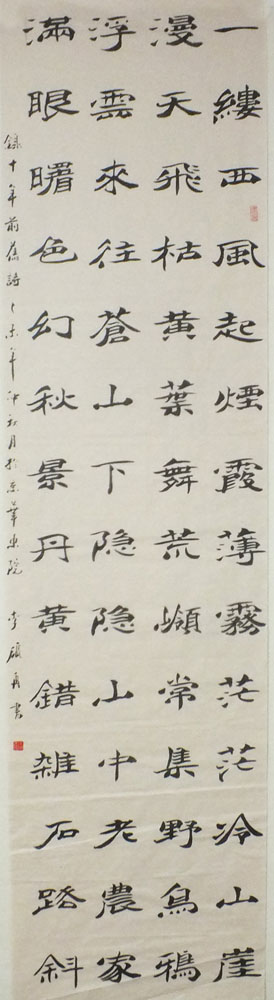 一縷西風起煙霞薄霧茫茫冷山崖
漫天飛枯黃葉舞荒巔常集野鳥鴉
浮雲來往蒼山下隐隐山中老農家
滿眼曙色幻秋景丹黃錯雜石路斜
錄十年前舊詩乙未年仲秋月於京華東院